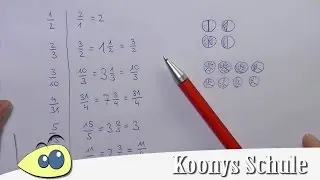 1/2 2/1 = 2
2/3 3/2 = 1 1/2 = 3/2
3/10 10/3 = 3 1/3 = 10/3
4/31 31/4 = 7 3/4 = 31/4
5 15/5 = 3
Koonys Schule